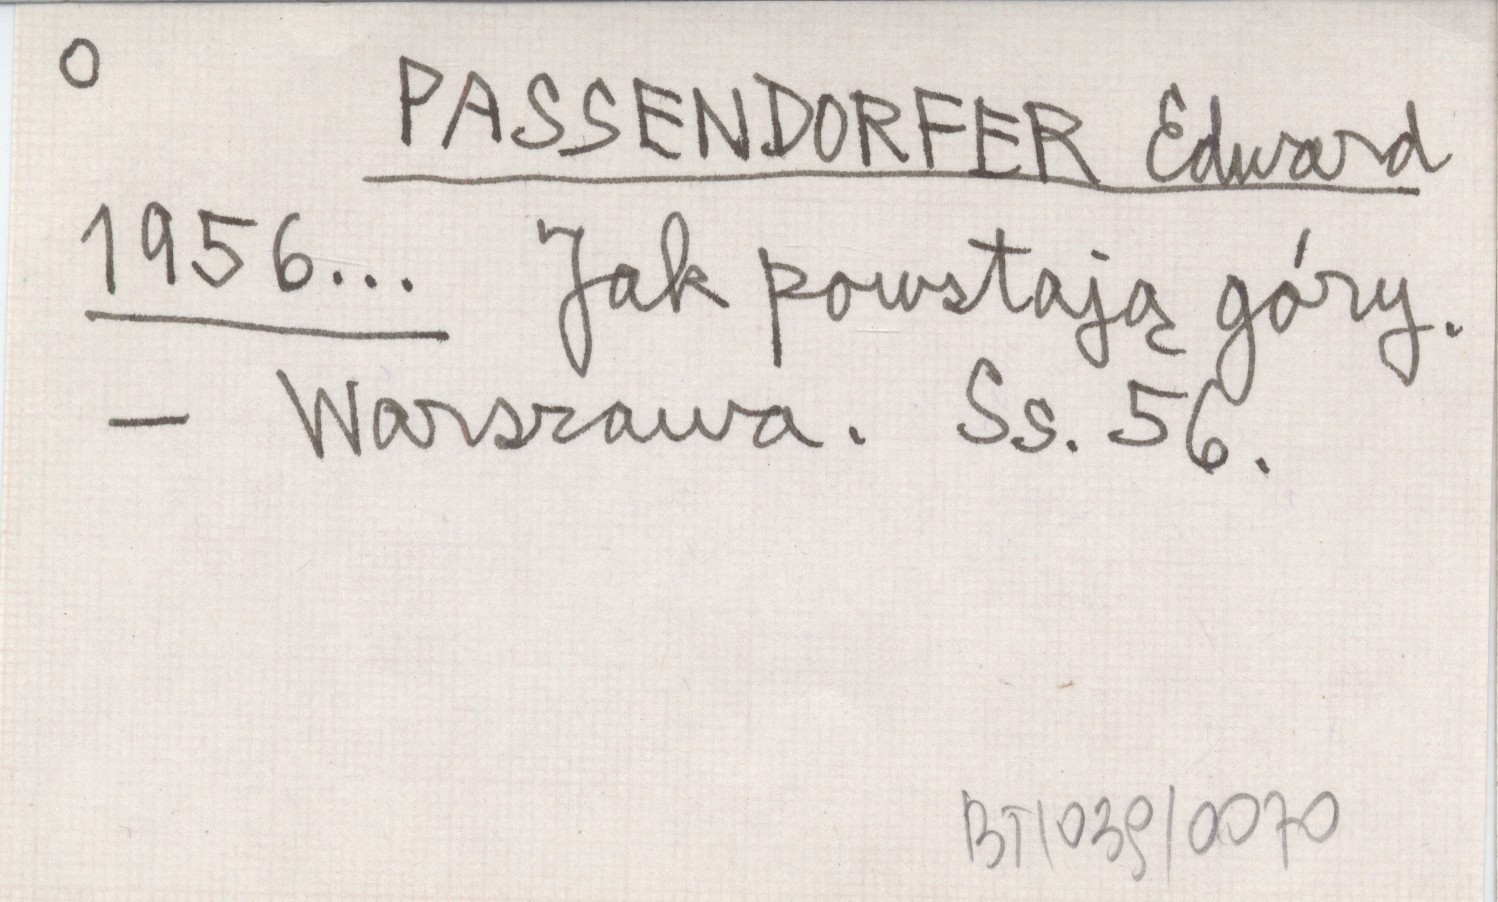 O
PASSENDORFER Edward
1956... Jak powstają góry.
— Warszawa. Ss. 56.
BT/039/0070